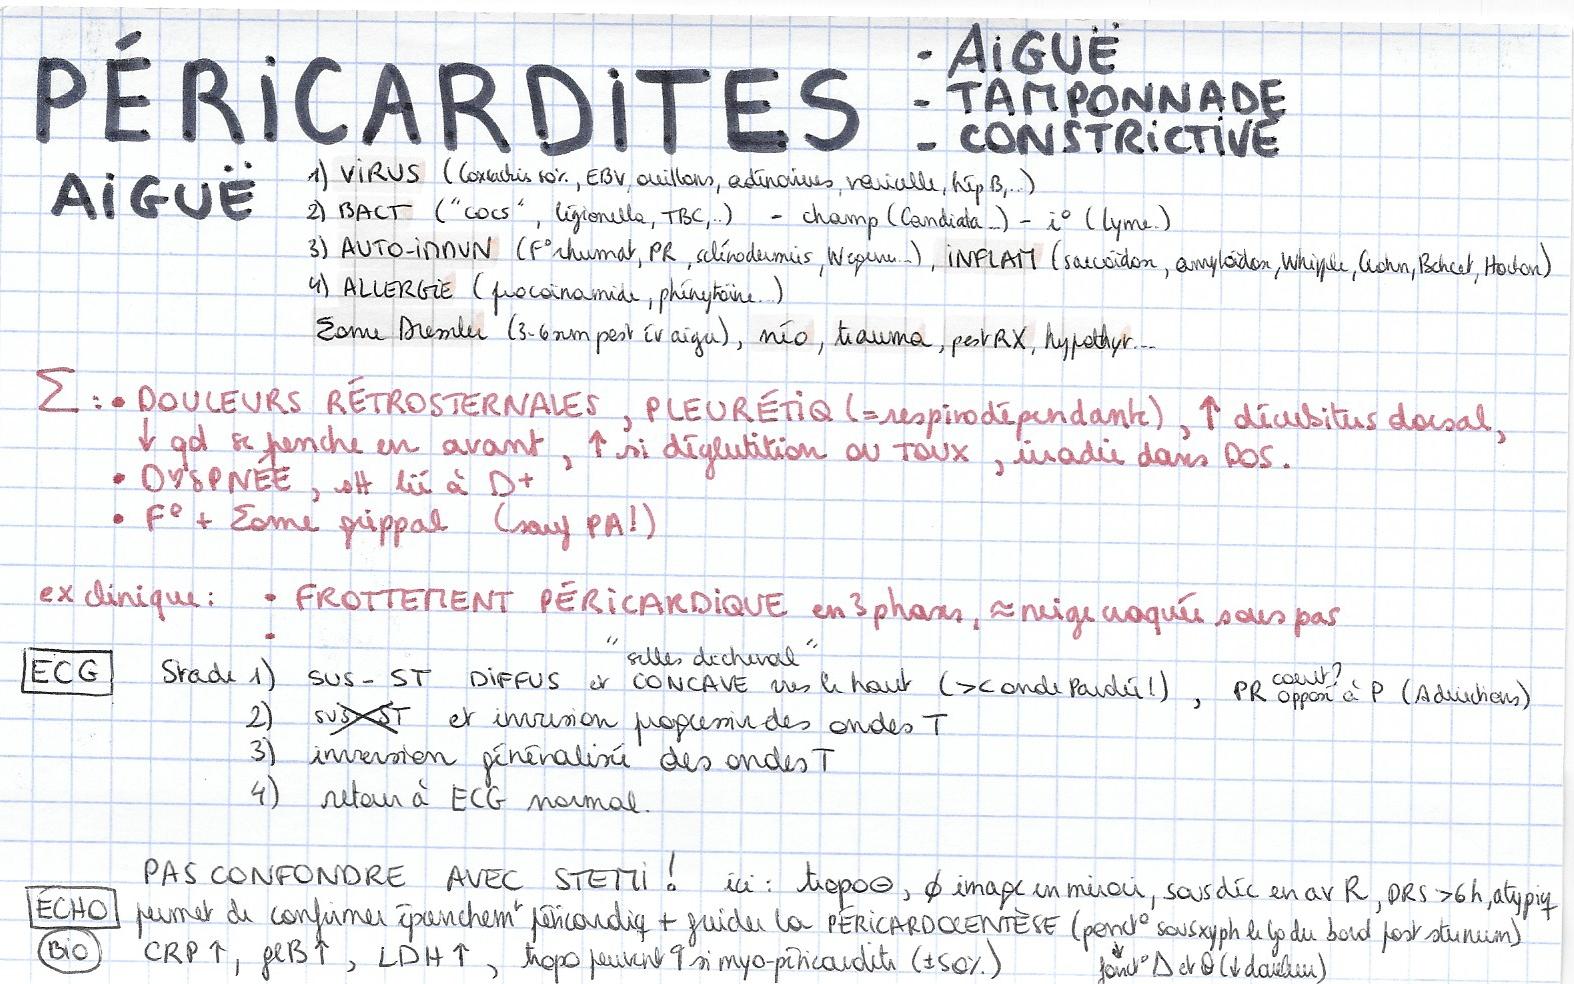 PÉRICARDITES
- AIGUË
- TAMPONNADE
- CONSTRICTIVE
AIGUË
1) VIRUS (Coxsackie 50%, EBV, oreillons, adénovirus, varicelle, hép B,..)
2) BACT ("cocs", légionella, TBC,..) - champ (Candida...) - i° (Lyme.)
3) AUTO-IMMUN (F° rhumat, PR, sclérodermie, Wegener...), INFLAM (sarcoïdose, amyloïdose, Whipple, Crohn, Behcet, Horton)
4) ALLERGIE (procainamide, phénytoïne..)
Σome Dressler (3-6 sem post aigu), néo, trauma, post RX, hypothyr...
Σ: • DOULEURS RÉTROSTERNALES, PLEURÉTIQ (= respirodépendante), ↑ décubitus dorsal,
↓ qd se penche en avant, ↑ si déglutition ou TOUX, irradie dans DOS.
• DYSPNÉE, lié à D+
• F° + Σome grippal (sauf PA!)
ex clinique: • FROTTEMENT PÉRICARDIQUE en 3 phases, ≈ neige craquée sous pas
•
"selles de cheval"
ECG Stade 1) SUS-ST DIFFUS et CONCAVE vers le haut (>< onde Pardée!), PR court? opposé à P (dérivations)
2) sus ST et inversion progressive des ondes T
3) inversion généralisée des ondes T
4) retour à ECG normal.
PAS CONFONDRE AVEC STEMI! ici: tropo ⊖, ∅ image en miroir, sous déc en aVR, DRS >6h, atypiq
ÉCHO permet de confirmer épanchemt péricardiq + guider la PÉRICARDOCENTÈSE (ponct° sous xyph le lg du bord post sternum)
BIO CRP↑, glB↑, LDH↑, tropo peuvent ↑ si myo-péricardite (±50%)
↓ fonct° Δ et θ (↓ douleur)